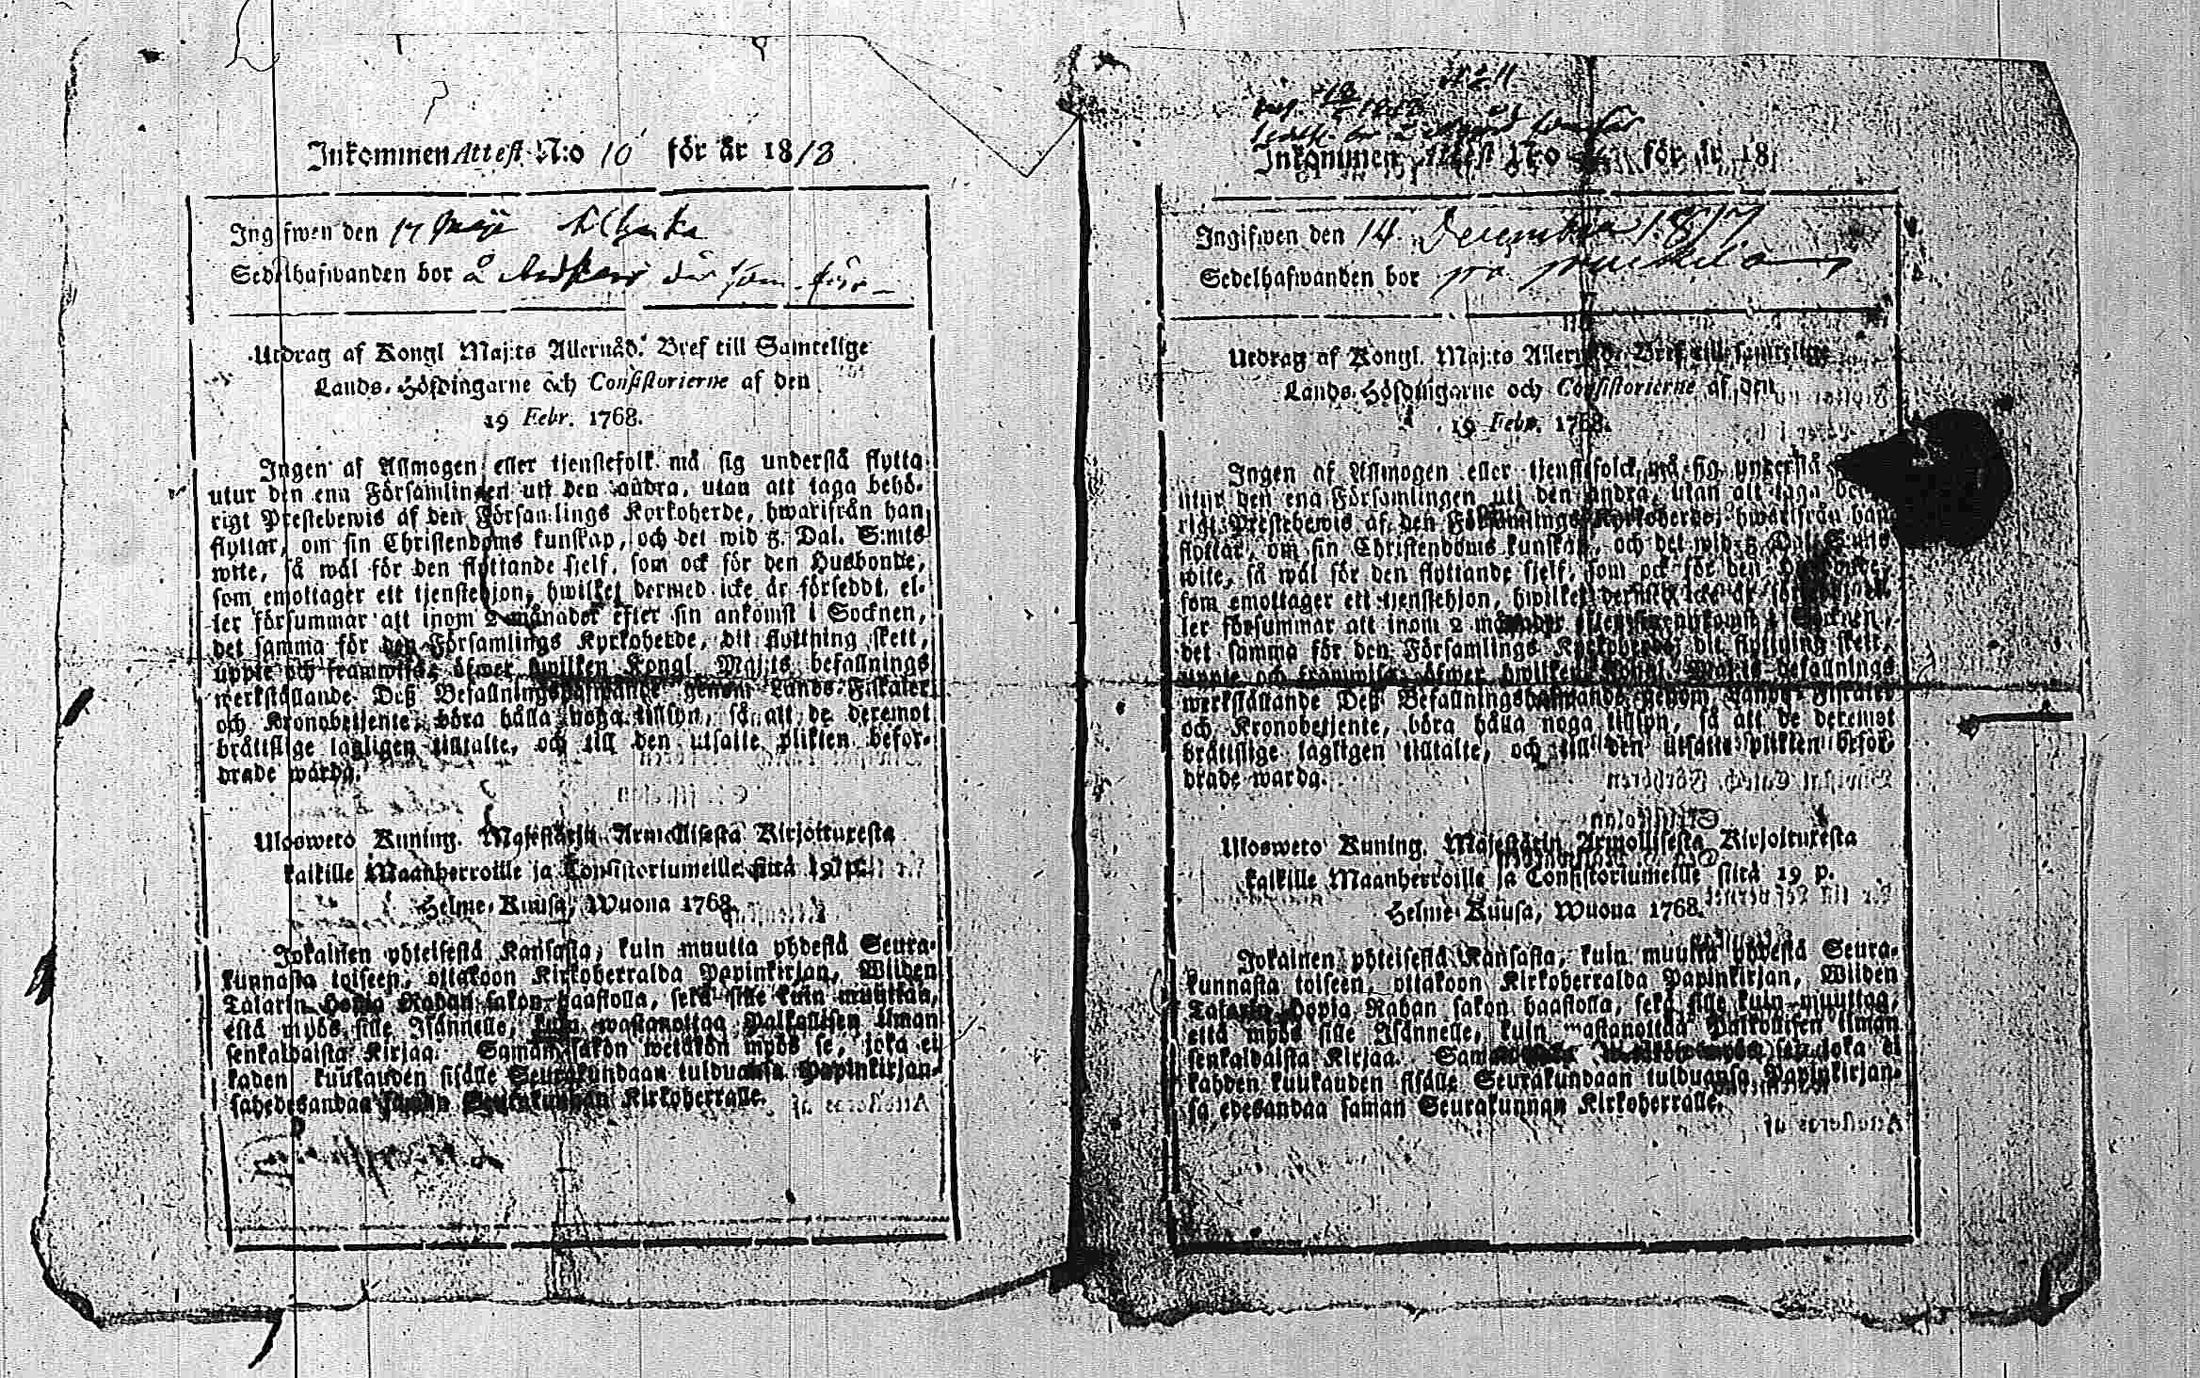 Inkommen Attest N:o 10 för år 1813
Ingifwen den 17 Maji
Sedelhafwanden bor å där som för
Utdrag af Kongl Maj:ts Allernåd. Bref till Samtelige
Lands-Höfdingarne och Consistorierne af den
19 Febr. 1768.
Ingen af Allmogen eller tjenstefolk må sig understå flytta
utur den ena Församlingen uti den andra, utan att taga behö-
rigt Prestebewis af den Församlings Kyrkoherde, hwarifrån han
flyttar, om sin Christendoms kunskap, och det wid 5. Dal. S:mts
wite, så wäl för den flyttande sjelf, som ock för den Husbonde,
som emottager ett tjenstehjon, hwilket dermed icke är försedt, el-
ler försummar att inom 2 månader efter sin ankomst i Socknen,
det samma för den Församlings Kyrkoherde, dit flyttning skett,
uppte och framwisa; öfwer hwilken Kongl. Maj:ts befallnings
werkställande Deß Befallningshafwande genom Lands-Fiskaler
och Kronobetjente, böra hålla noga tillsyn, så att de deremot
bråttslige lagligen tilltalte, och till den utsatte plikten befor-
drade warda.
Ulosweto Kuning. Majestätin Armollisesta Kirjoituxesta
kaikille Maanherroille ja Consistoriumeille siitä 19 p.
Helme-Kuusa, Wuona 1768.
Jokainen yhteisestä Kansasta, kuin muutta yhdestä Seura-
kunnasta toiseen, ottakoon Kirkoherralda Papinkirjan, Wiiden
Talarin Hopia Rahan sakon haastolla, sekä sille kuin muuttaa,
että myös sille Isännelle, kuin wastanottaa Palkollisen ilman
senkaldaista Kirjaa. Saman sakon wetäkön myös se, joka ei
kahden kuukauden sisälle Seurakundaan tulduansa Papinkirjan-
sa edesandaa saman Seurakunnan Kirkoherralle.
Inkommen Attest N:o för år 18
Ingifwen den 14 December 1817
Sedelhafwanden bor på
Utdrag af Kongl. Maj:ts Allernåd. Bref till samtelige
Lands-Höfdingarne och Consistorierne af den
19 Febr. 1768.
Ingen af Allmogen eller tjenstefolck må sig understå
utur den ena Församlingen uti den andra, utan att taga
rigt Prestebewis af den Församlings Kyrkoherde, hwarifrån han
flyttar, om sin Christendoms kunskap, och det wid 5 Dal. S:mts
wite, så wäl för den flyttande sjelf, som ock för den
som emottager ett tjenstehjon, hwilket dermed icke är
ler försummar att inom 2 månader efter sin ankomst i Socknen,
det samma för den Församlings Kyrkoherde, dit flyttning skett,
uppte och framwisa; öfwer hwilken Kongl. Maj:ts befallnings
werkställande Deß Befallningshafwande genom Lands-Fiskaler
och Kronobetjente, böra hålla noga tillsyn, så att de deremot
bråttslige lagligen tilltalte, och till den utsatte plikten befor-
drade warda.
Ulosweto Kuning. Majestätin Armollisesta Kirjoituxesta
kaikille Maanherroille ja Consistoriumeille siitä 19 p.
Helme-Kuusa, Wuona 1768.
Jokainen yhteisestä Kansasta, kuin muutta yhdestä Seura-
kunnasta toiseen, ottakoon Kirkoherralda Papinkirjan, Wiiden
Talarin Hopia Rahan sakon haastolla, sekä sille kuin muuttaa,
että myös sille Isännelle, kuin wastanottaa Palkollisen ilman
senkaldaista Kirjaa. joka ei
kahden kuukauden sisälle Seurakundaan tulduansa Papinkirjan-
sa edesandaa saman Seurakunnan Kirkoherralle.